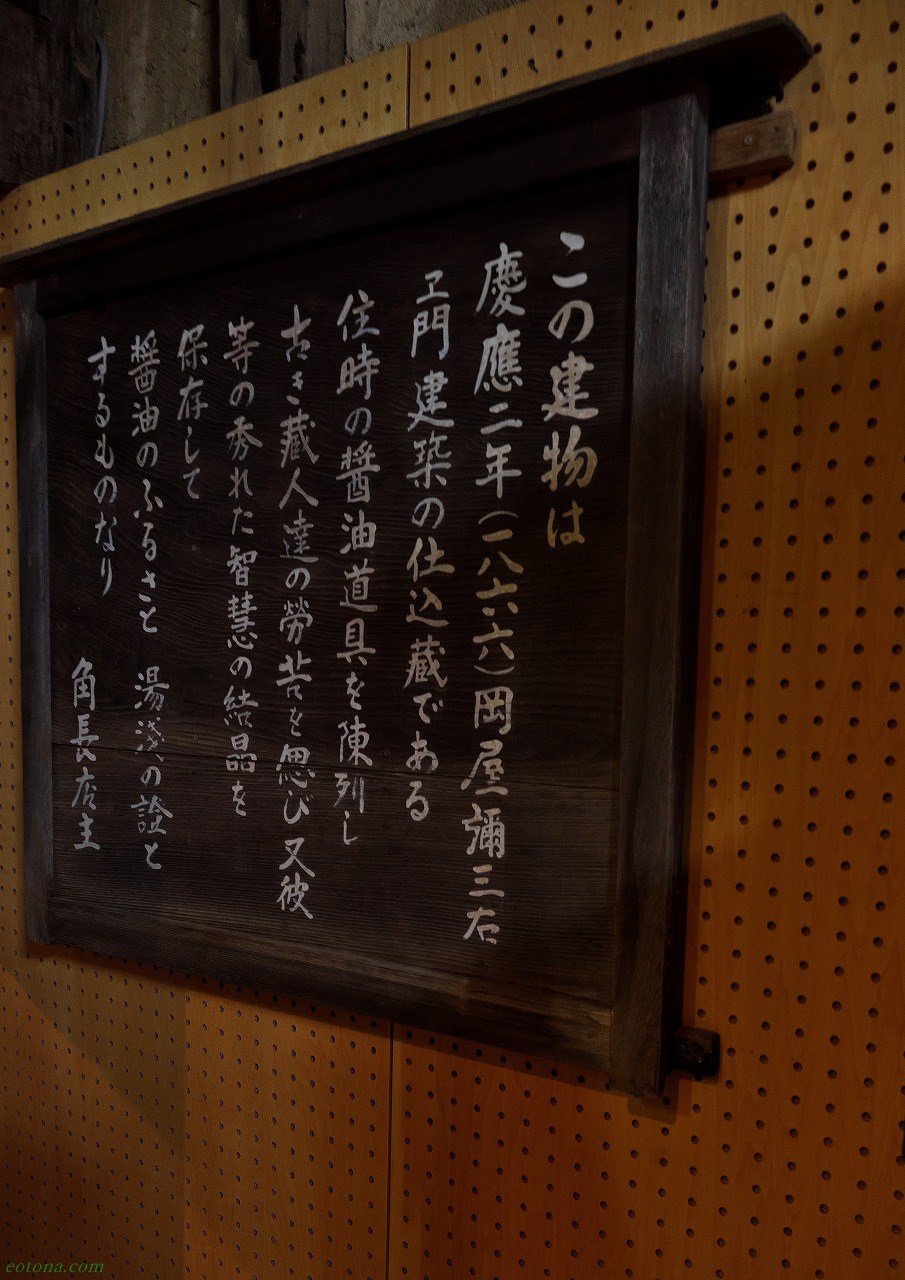 この建物は
慶應二年(一八六六)岡屋彌三右
ヱ門建築の仕込蔵である
住時の醬油道具を陳列し
古き藏人達の勞苦を偲び又彼
等の秀れた智慧の結晶を
保存して
醬油のふるさと 湯浅の證と
するものなり
角長店主
eotona.com